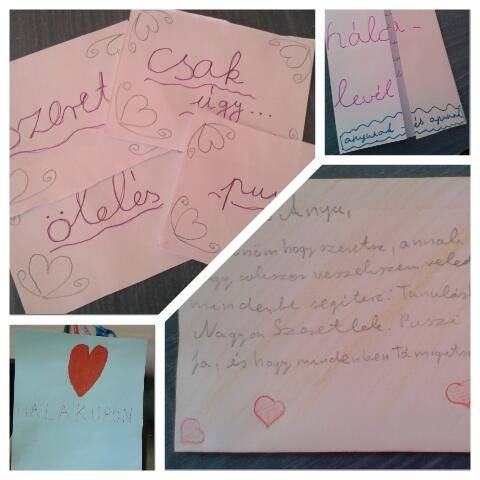 szeret
csak
úgy...
ölelés
pu
hála-
levél
anyunak és apunak
Anyu,
önöm hogy szeretsz, annak
gy sokszor veszekszem veled
mindenbe segítesz: Tanulás
Nagyon Szeretlek. Puszi
ja, és hogy mindenben támogatsz
HÁLAKUPON